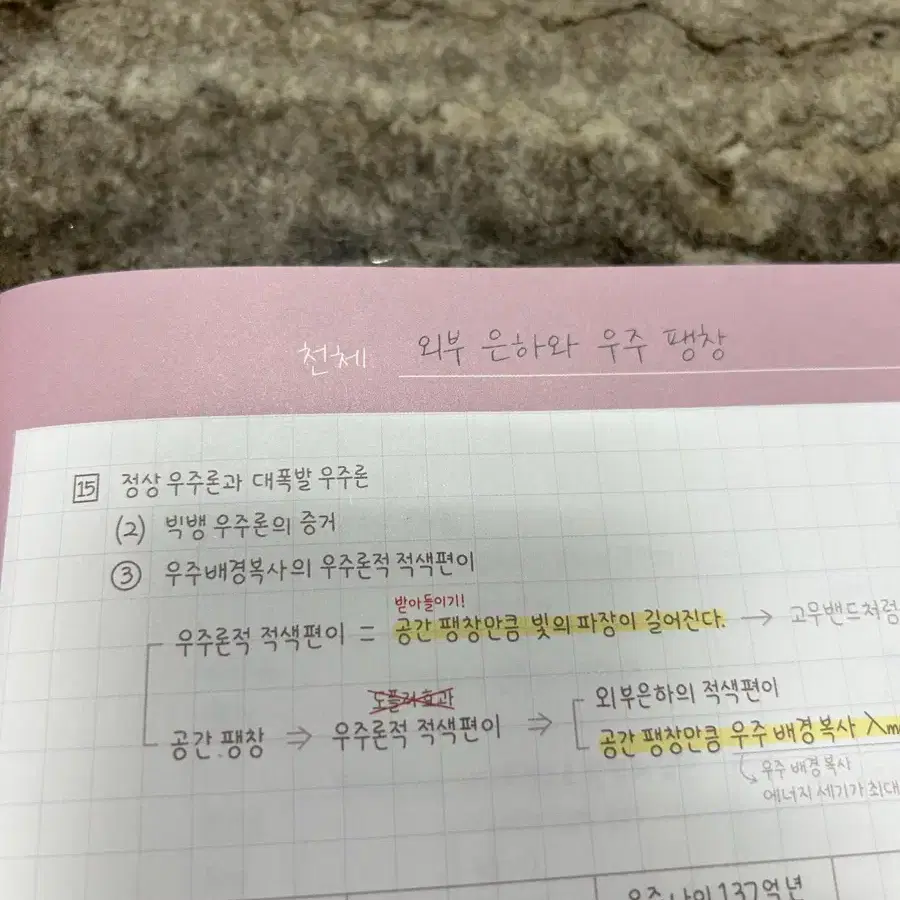 천체 외부 은하와 우주 팽창
15 정상 우주론과 대폭발 우주론
(2) 빅뱅 우주론의 증거
③ 우주배경복사의 우주론적 적색편이
받아들이기!
우주론적 적색편이 = 공간 팽창만큼 빛의 파장이 길어진다. → 고무밴드처럼
도플러효과
공간 팽창 ⇒ 우주론적 적색편이 ⇒ 외부은하의 적색편이
공간 팽창만큼 우주 배경복사 λm
우주 배경 복사
에너지 세기가 최대
우주 나이 137억 년